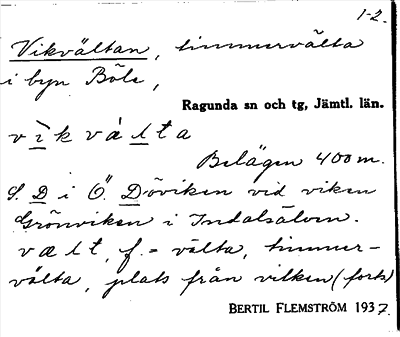 1-2.
Vikvältan, timmervälta
i byn Böle,
Ragunda sn och tg, Jämtl. län.
vìkvàlta
Belägen 400 m.
S. D i Ö. Döviken vid viken
Grönviken i Indalsälven.
vælt, f. = välta, timmer-
välta, plats från vilken (forts)
BERTIL FLEMSTRÖM 1937.